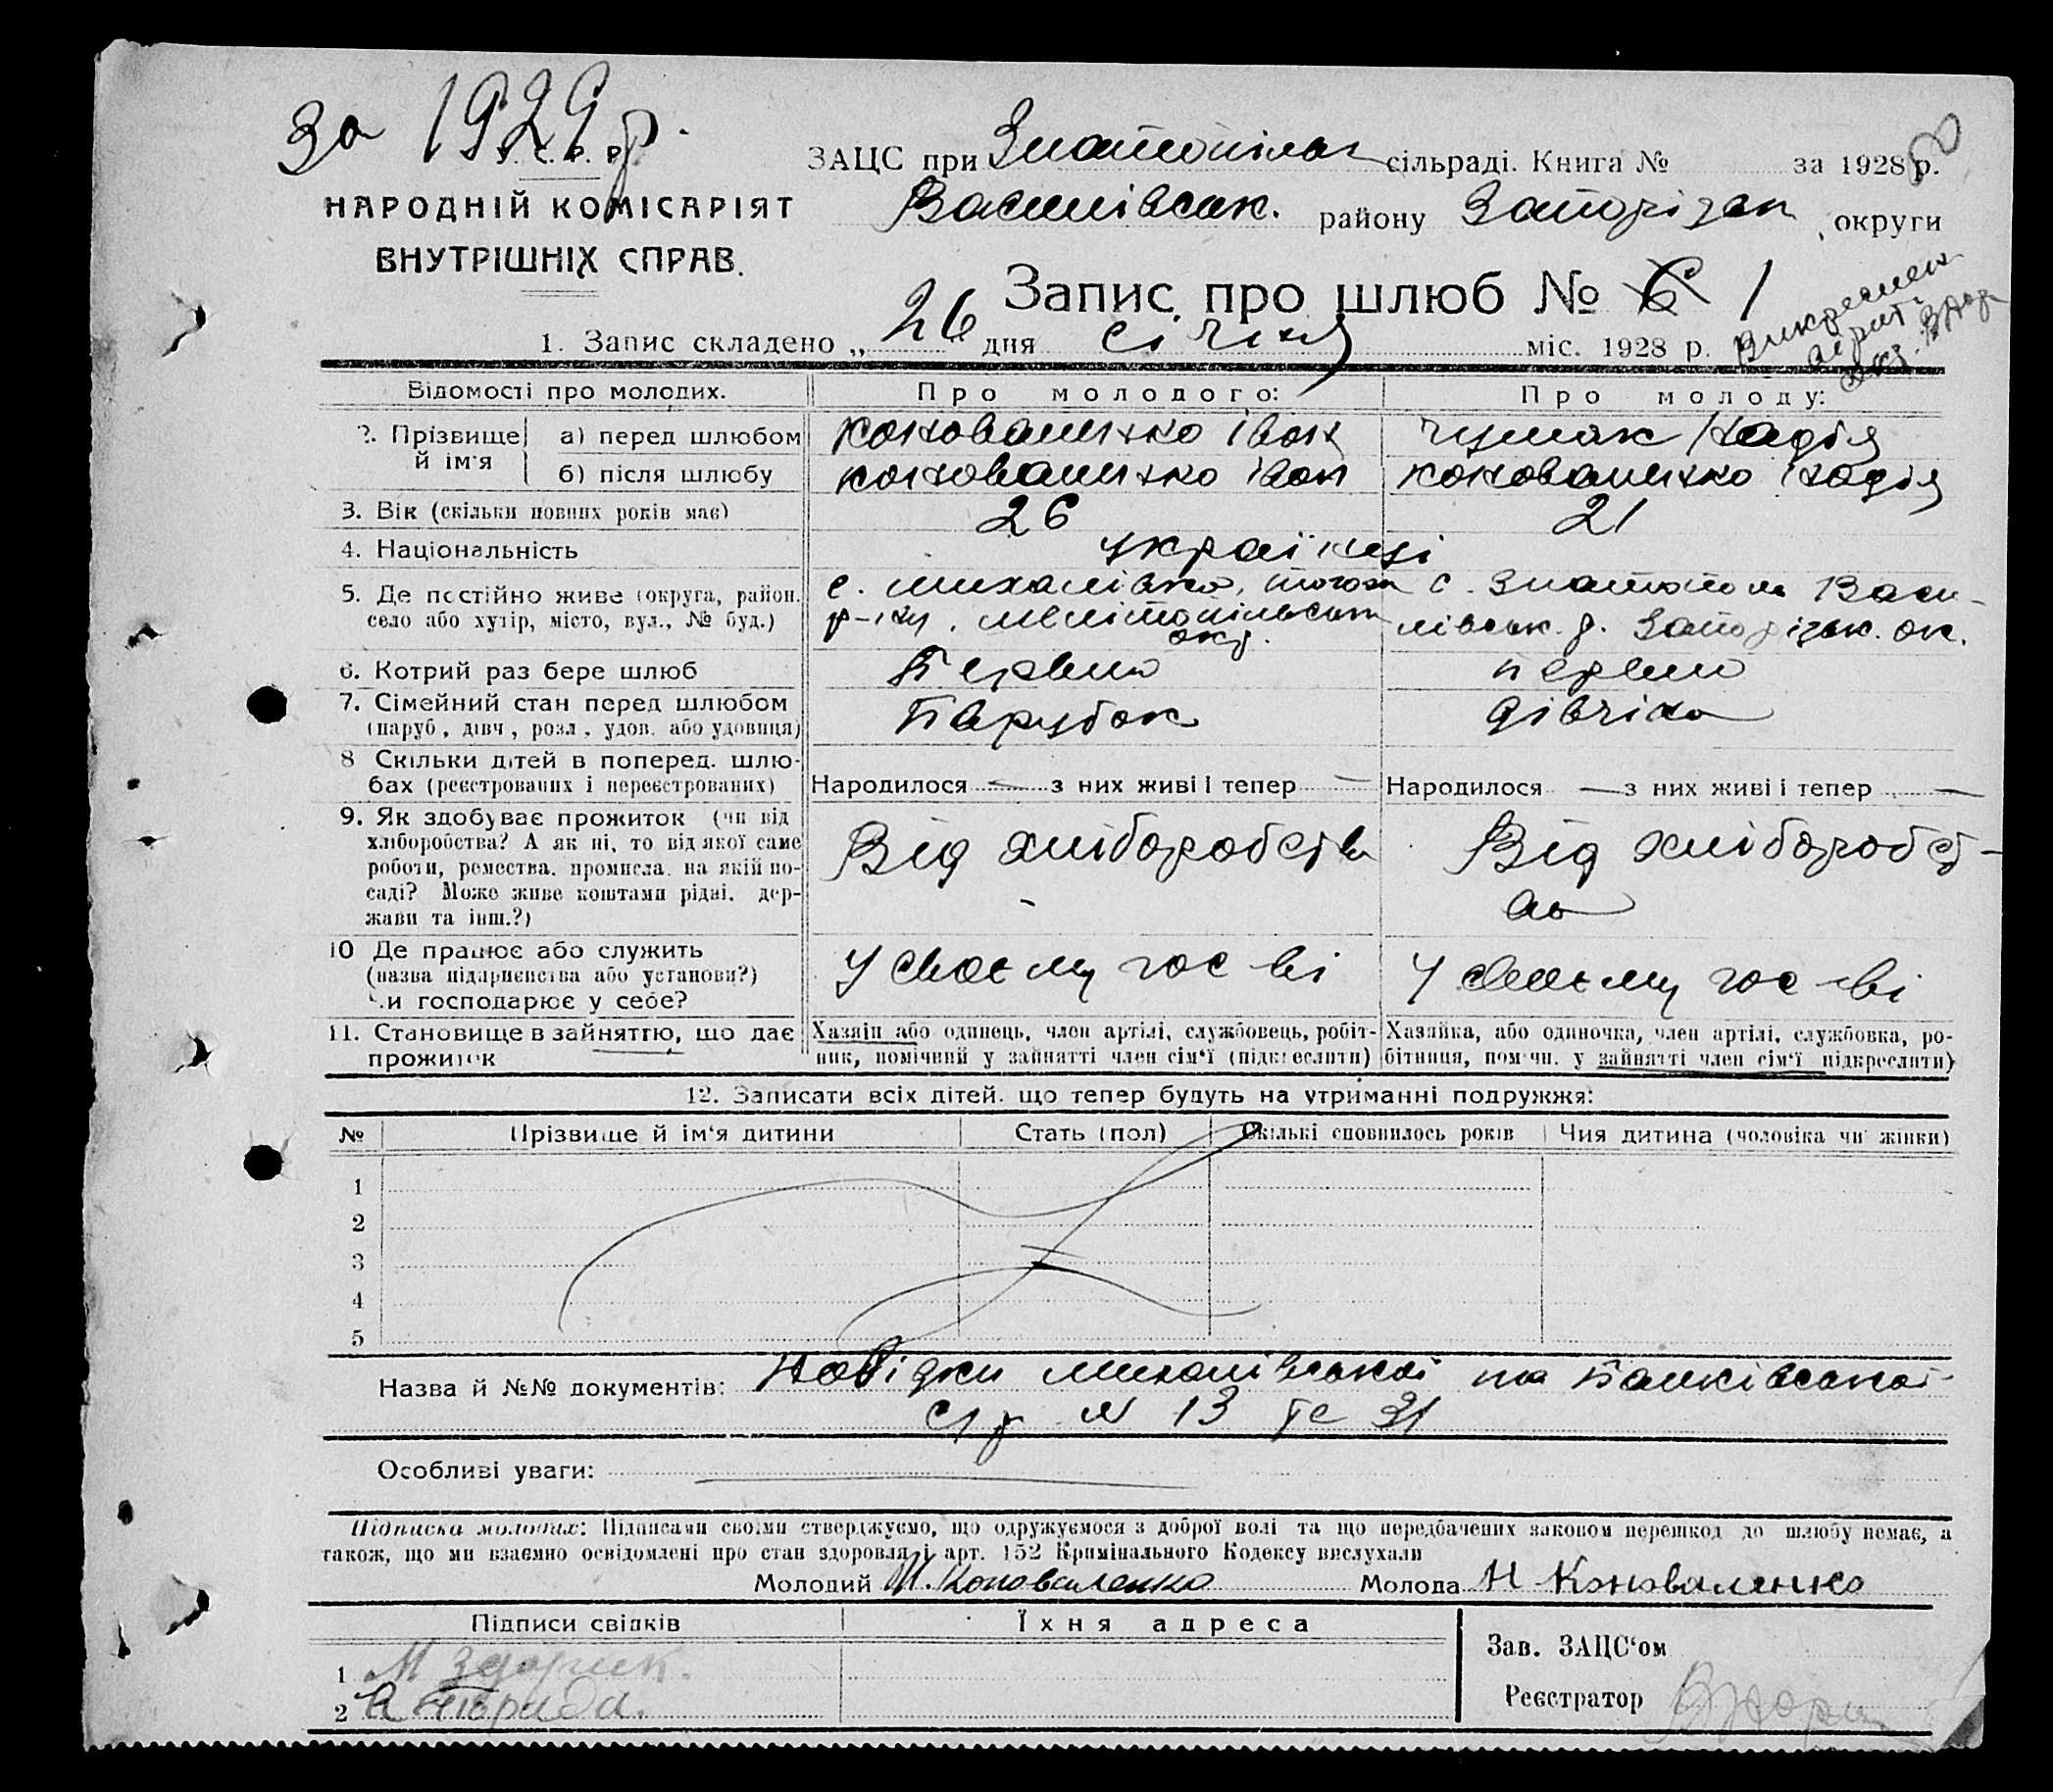 За 1929 р.
У. С. Р. Р.
НАРОДНІЙ КОМІСАРІЯТ
ВНУТРІШНІХ СПРАВ.
ЗАЦС при Златопільск сільраді. Книга № за 1928 р.
Василівськ. району Запорізьк округи
Запис про шлюб № 6 1
1. Запис складено „ 26 " дня січня міс. 1928 р.
Відомості про молодих. Про молодого: Про молоду:
2. Прізвище й ім'я а) перед шлюбом Коноваленко Іван Чумак Надія
б) після шлюбу Коноваленко Іван Коноваленко Надія
3. Вік (скільки повних років має) 26 21
4. Національність українці
5. Де постійно живе (округа, район. с. Михалівка, того ж с. Златополь Васи-
село або хутір, місто, вул., № буд.) р-ну, Мелітопільськ окр. лівськ. р. Запорізьк. ок.
6. Котрий раз бере шлюб Первий первий
7. Сімейний стан перед шлюбом Парубок дівчина
(паруб., дівч., розл., удов. або удовиця)
8 Скільки дітей в поперед. шлю-
бах (реєстрованих і нереєстрованих) Народилося — з них живі і тепер — Народилося — з них живі і тепер —
9. Як здобуває прожиток (чи від
хліборобства? А як ні, то від якої саме Від хліборобства Від хліборобст-
роботи, ремества. промисла. на якій по-
саді? Може живе коштами рідні. дер- ва
жави та інш.?)
10 Де працює або служить
(назва підприємства або установи?) У своєму гос-ві У своєму гос-ві
чи господарює у себе?
11. Становище в зайняттю, що дає Хазяін або одинець, член артілі, службовець, робіт- Хазяйка, або одиночка, член артілі, службовка, ро-
прожиток ник, помічний у зайнятті член сім'ї (підкреслити) бітниця, помічн. у зайнятті член сім'ї підкреслити)
12. Записати всіх дітей. що тепер будуть на утриманні подружжя:
№ Прізвише й ім'я дитини Стать (пол) Скількі сповнилось років Чия дитина (чоловіка чи жінки)
1
2
3
4
5
Назва й №№ документів: Довідки Михалівської та Панківської
с/р № 13 та 31
Особливі уваги:
Підписка молодих: Підписами своїми стверджуємо, що одружуємося з доброї волі та що передбачених законом перешкод до шлюбу немає, а
також, що ми взаємно освідомлені про стан здоровля і арт. 152 Кримінального Кодексу вислухали
Молодий И. Коноваленко Молода Н Коноваленко
Підписи свідків Їхня адреса
Зав. ЗАЦС'ом
1
2
Реєстратор